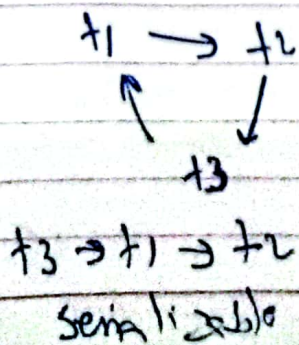 t1 → t2
t3
t3 → t1 → t2
serializable